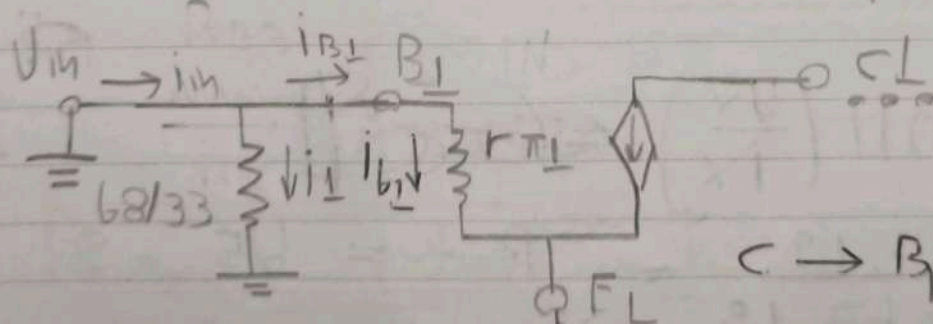 Vin → iin iB1 → B1 C1
68/33 ↓i1 ib1↓ rπ1 ↓
C → B
E1